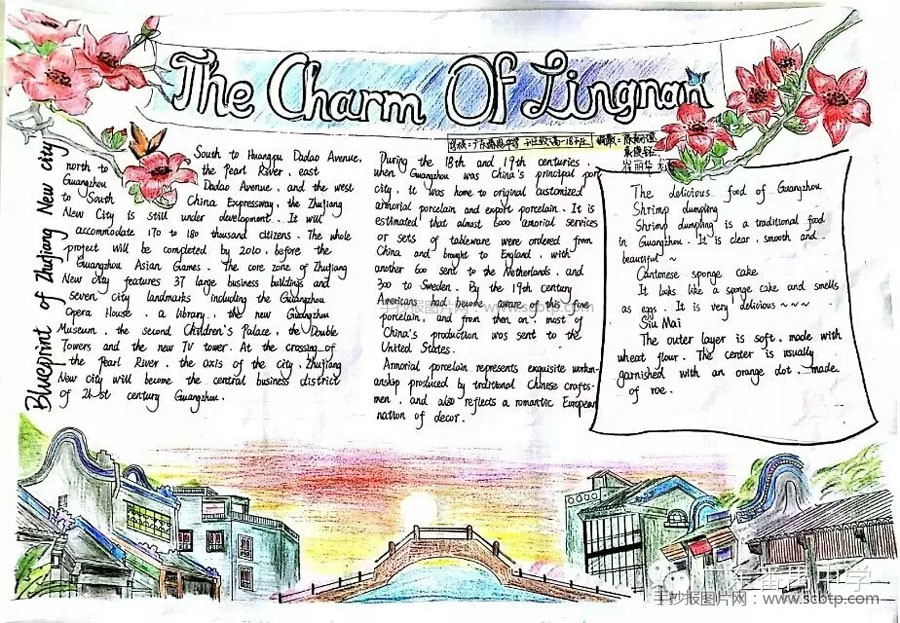 The Charm Of Lingnan
Blueprint of Zhujiang New city
South to Huangpu Dadao Avenue,
north to the Pearl River, east
Guangzhou Dadao Avenue, and the west
to South China Expressway, the Zhujiang
New City is still under development. It will
accommodate 170 to 180 thousand citizens. The whole
project will be completed by 2010, before the
Guangzhou Asian Games. The core zone of Zhujiang
New city features 37 large business buildings and
seven city landmarks including the Guangzhou
Opera House, a library, the new Guangzhou
Museum, the second Children's Palace, the Double
Towers and the new TV tower. At the crossing of
the Pearl River, the axis of the city, Zhujiang
New city will become the central business district
of 21st century Guangzhou.
During the 18th and 19th centuries,
when Guangzhou was China's principal port
city, it was home to original customized
armorial porcelain and export porcelain. It is
estimated that almost 6000 armorial services
or sets of tableware were ordered from
China and brought to England, with
another 600 sent to the Netherlands, and
300 to Sweden. By the 19th century
Americans had become aware of this fine
porcelain, and from then on, most of
China's production was sent to the
United States.
Armorial porcelain represents exquisite workm-
anship produced by traditional Chinese crafts-
men, and also reflects a romantic European
nation of decor.
The delicious food of Guangzhou
Shrimp dumpling
Shrimp dumpling is a traditional food
in Guangzhou. It is clear, smooth and
beautiful ~
Cantonese sponge cake
It looks like a sponge cake and smells
as eggs. It is very delicious ~~~~
Siu Mai
The outer layer is soft, made with
wheat flour. The center is usually
garnished with an orange dot, made
of roe.
手抄报图片网 www.scbtp.com
手抄报图片网：www.scbtp.com